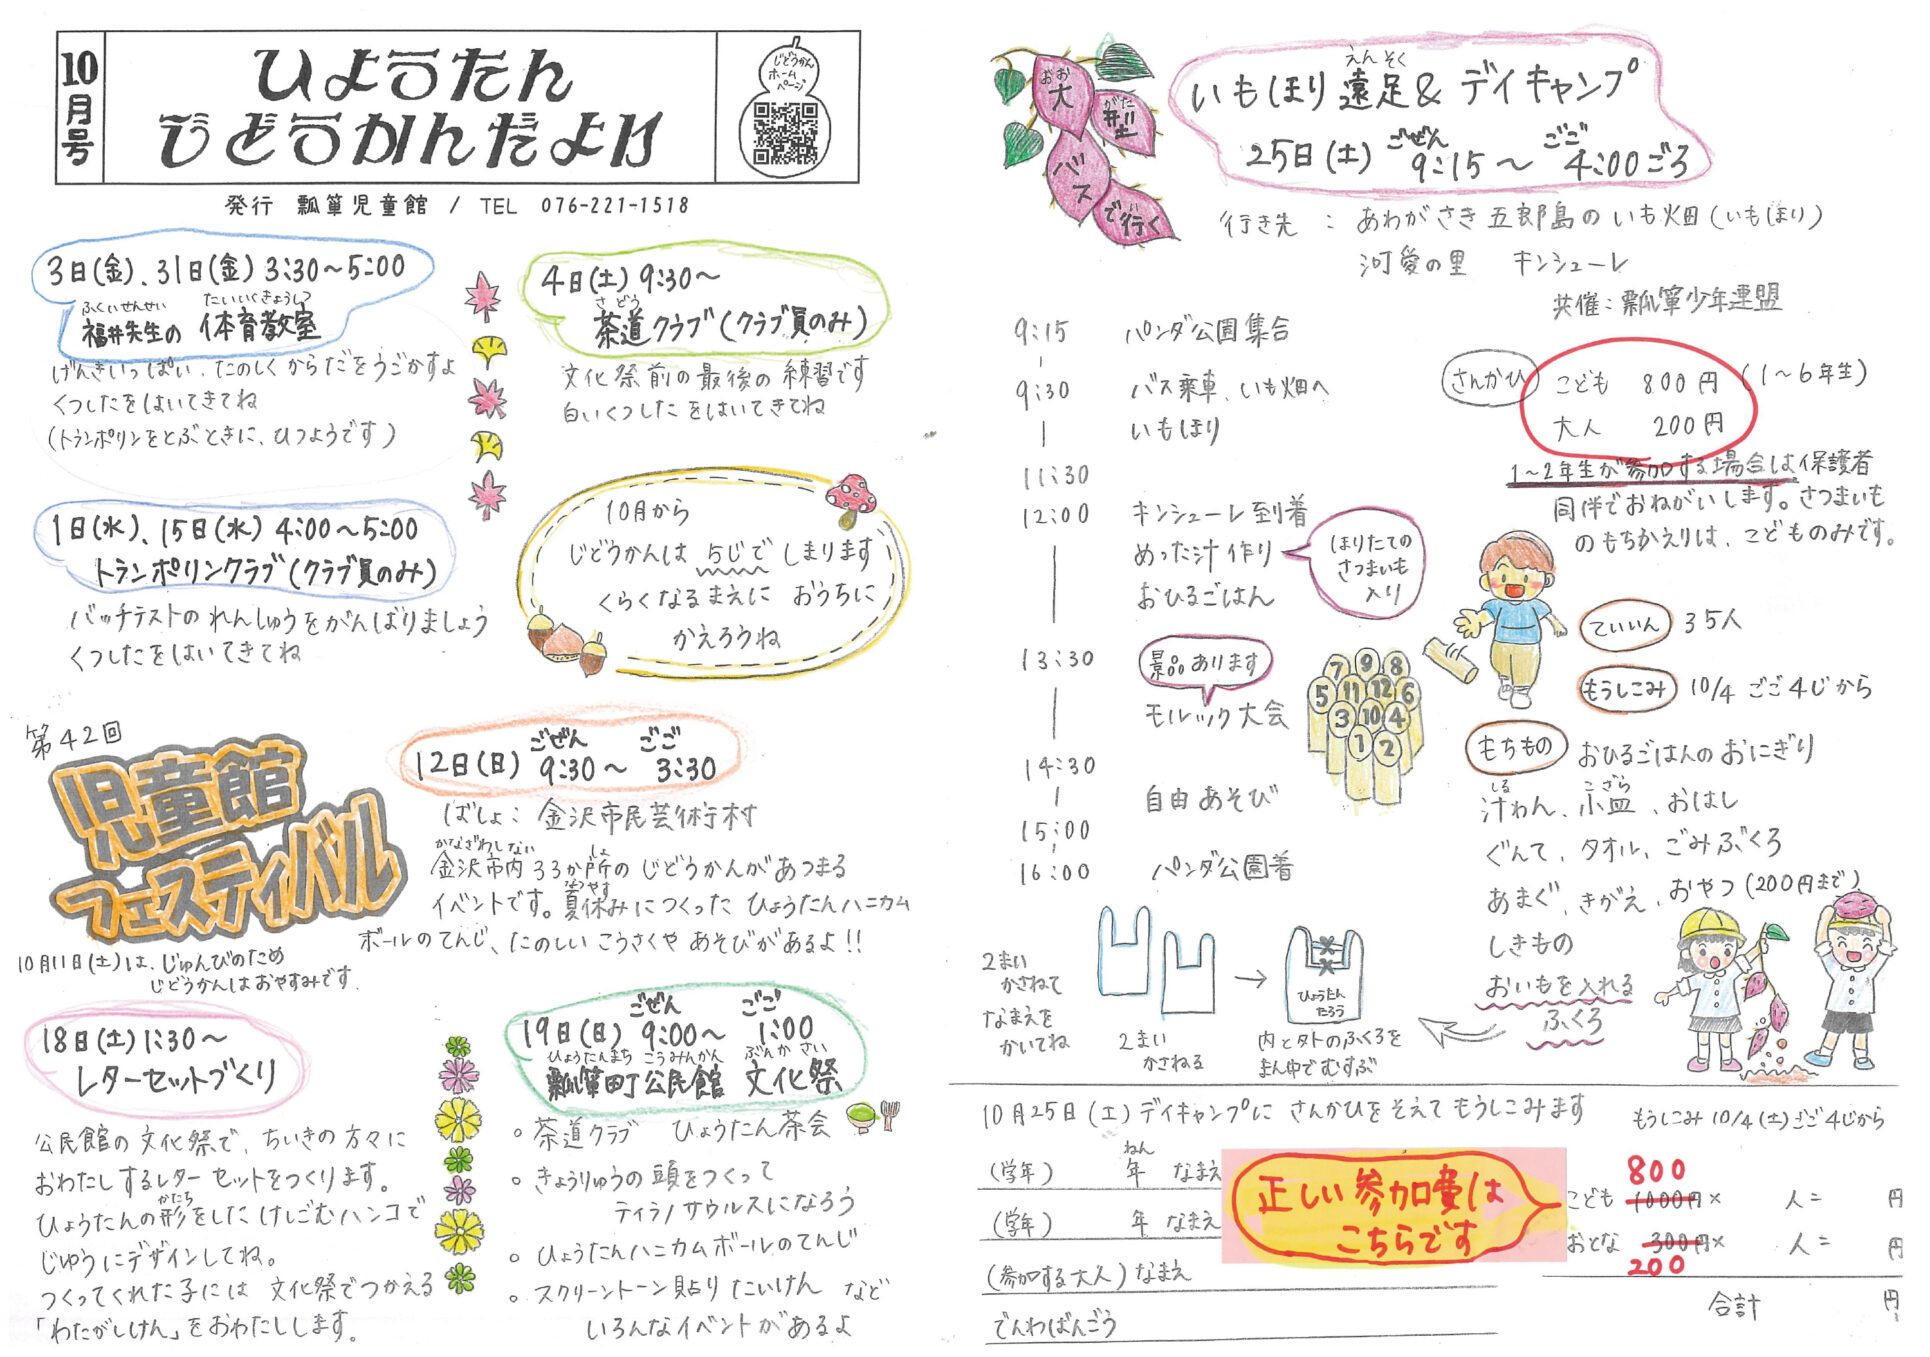 10月号
ひょうたん
じどうかんだより
じどうかん
ホーム
ページ
発行 瓢箪児童館 / TEL 076-221-1518
3日(金)、31日(金) 3:30～5:00
ふくいせんせい たいいくきょうしつ
福井先生の 体育教室
げんきいっぱい、たのしくからだをうごかすよ
くつしたをはいてきてね
(トランポリンをとぶときに、ひつようです)
4日(土) 9:30～
さどう
茶道クラブ(クラブ員のみ)
文化祭前の最後の練習です
白いくつしたをはいてきてね
1日(水)、15日(水) 4:00～5:00
トランポリンクラブ(クラブ員のみ)
バッチテストのれんしゅうをがんばりましょう
くつしたをはいてきてね
10月から
じどうかんは 5じで しまります
くらくなるまえに おうちに
かえろうね
第42回
児童館
フェスティバル
ごぜん ごご
12日(日) 9:30～ 3:30
ばしょ: 金沢市民芸術村
かなざわしない しょ
金沢市内33か所のじどうかんがあつまる
なつやす
イベントです。夏休みにつくった ひょうたんハニカム
ボールのてんじ、たのしいこうさくや あそびがあるよ!!
10月11日(土)は、じゅんびのため
じどうかんはおやすみです.
18日(土) 1:30～
レターセットづくり
公民館の文化祭で、ちいきの方々に
おわたしするレターセットをつくります。
かたち
ひょうたんの形をしたけしごむハンコで
じゆうにデザインしてね。
つくってくれた子には 文化祭でつかえる
「わたがしけん」をおわたしします.
ごぜん ごご
19日(日) 9:00～ 1:00
ひょうたんまち こうみんかん ぶんか さい
瓢箪町公民館 文化祭
○ 茶道クラブ ひょうたん茶会
○ きょうりゅうの頭をつくって
ティラノサウルスになろう
○ ひょうたんハニカムボールのてんじ
○ スクリーントーン貼りたいけん など
いろんなイベントがあるよ
おお
大
がた
型
バス
で行く
えんそく
いもほり遠足& デイキャンプ
ごぜん ごご
25日(土) 9:15～ 4:00ごろ
行き先 : あわがさき五郎島のいも畑(いもほり)
河愛の里 キンシューレ
共催: 瓢箪少年連盟
9:15 パンダ公園集合
9:30 バス乗車、いも畑へ
いもほり
11:30
12:00 キンシューレ到着
めった汁作り
おひるごはん
ほりたての
さつまいも
入り
13:30 景品あります
モルック大会
14:30
自由あそび
15:00
16:00 パンダ公園着
さんかひ こども 800円 (1～6年生)
大人 200円
1～2年生が参加する場合は保護者
同伴でおねがいします。さつまいも
のもちかえりは、こどものみです。
7 9 8
5 11 12 6
3 10 4
1 2
ていいん 35人
もうしこみ 10/4 ごご4じから
もちもの おひるごはんのおにぎり
しる こざら
汁わん、小皿、おはし
ぐんて、タオル、ごみぶくろ
あまぐ、きがえ、おやつ(200円まで)
しきもの
おいもを入れる
ふくろ
2まい
かさねて
なまえを
かいてね
2まい
かさねる
ひょうたん
たろう
内と外のふくろを
まん中でむすぶ
10月25日(土)デイキャンプに さんかひをそえて もうしこみます
もうしこみ 10/4(土)ごご4じから
ねん
(学年) 年 なまえ
(学年) 年 なまえ
(参加する大人)なまえ
でんわばんごう
正しい参加費は
こちらです
800
こども 1000円× 人= 円
おとな 300円× 人= 円
200
合計 円